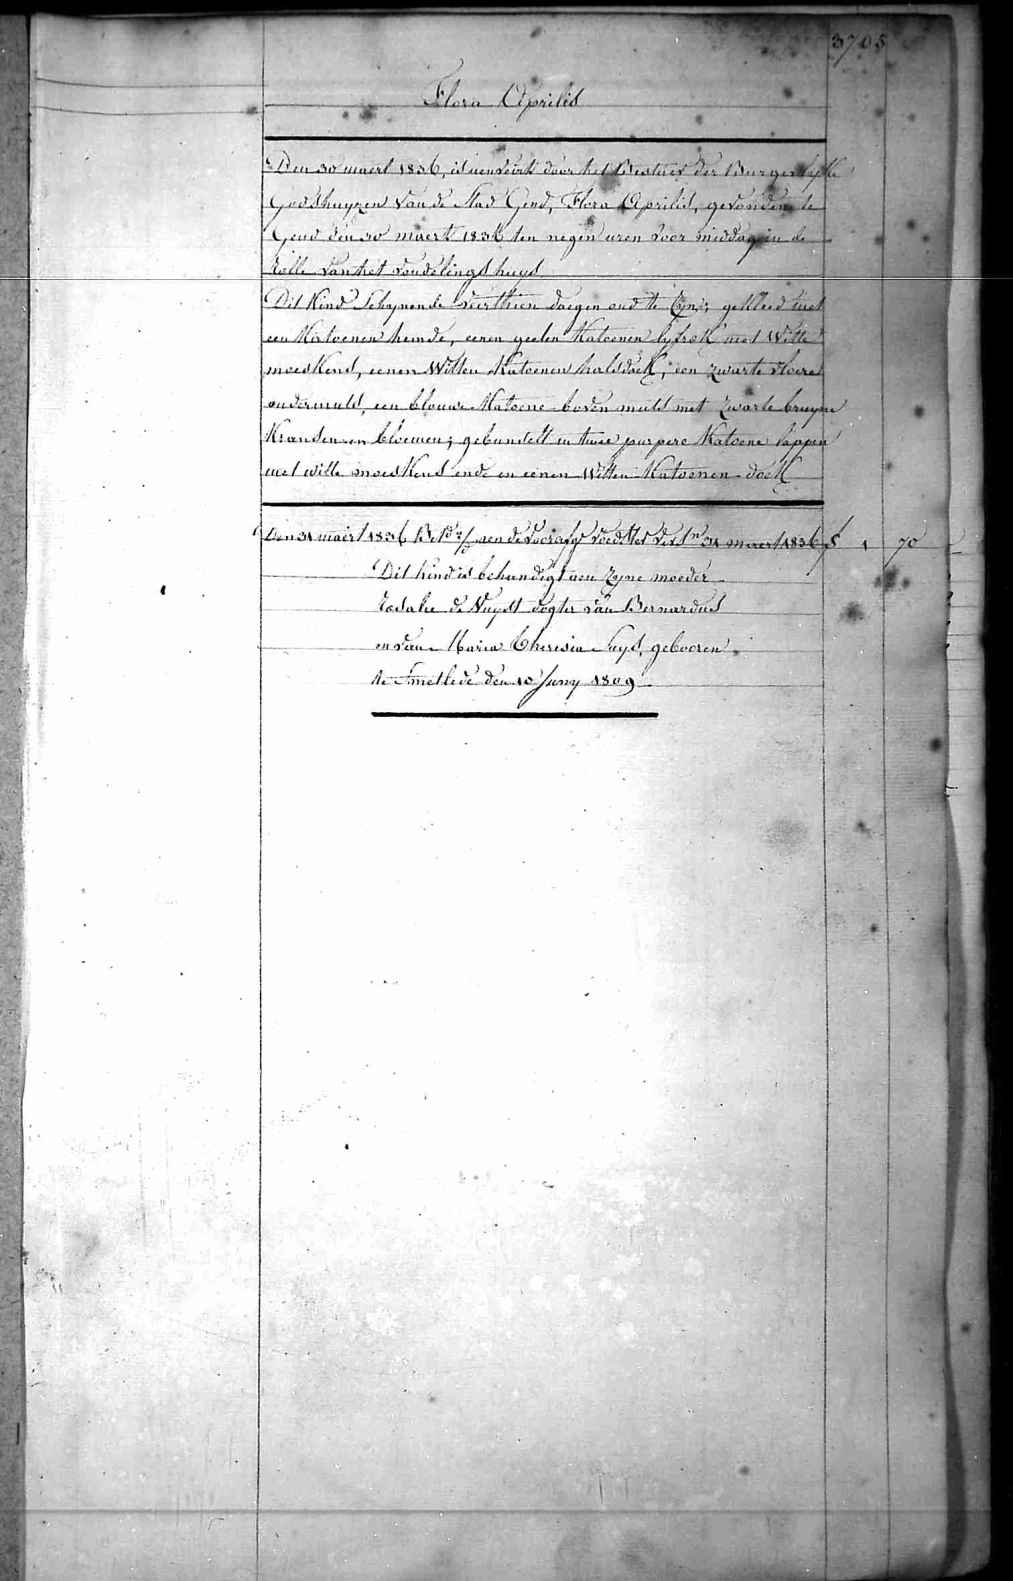 3705
Flora Aprilis
Den 30 maert 1836, is aenveird door het Bestuer der Burgerlyke
Godshuyzen van de Stad Gend, Flora Aprilis, gevonden te
Gend den 30 maert 1836 ten negen uren voor middag in de
rolle van het vondelingshuys
Dit Kind schynende veerthien daegen oud te zyn; gekleed met
een Katoenen hemde, eenen geelen Katoenen lyfrok met Witte
moeskens, eenen Witten Katoenen halsdoek, een zwarte floere
ondermuts, een blouwe Katoene boven muts met zwarte bruyne
Kransen en bloemen; gebundelt in twee purpere Katoene lappen
met witte moeskens ende en eenen Witten Katoenen doek
Den 31 maert 1836 aen de voedster 31 maert 1836 f 1 70
Dit Kind is behandigt aen zyne moeder
Rosalie de Nuyst dogter van Bernardus
en van Maria Theresia Suys, gebooren
te Smetlede den 10 Juny 1809